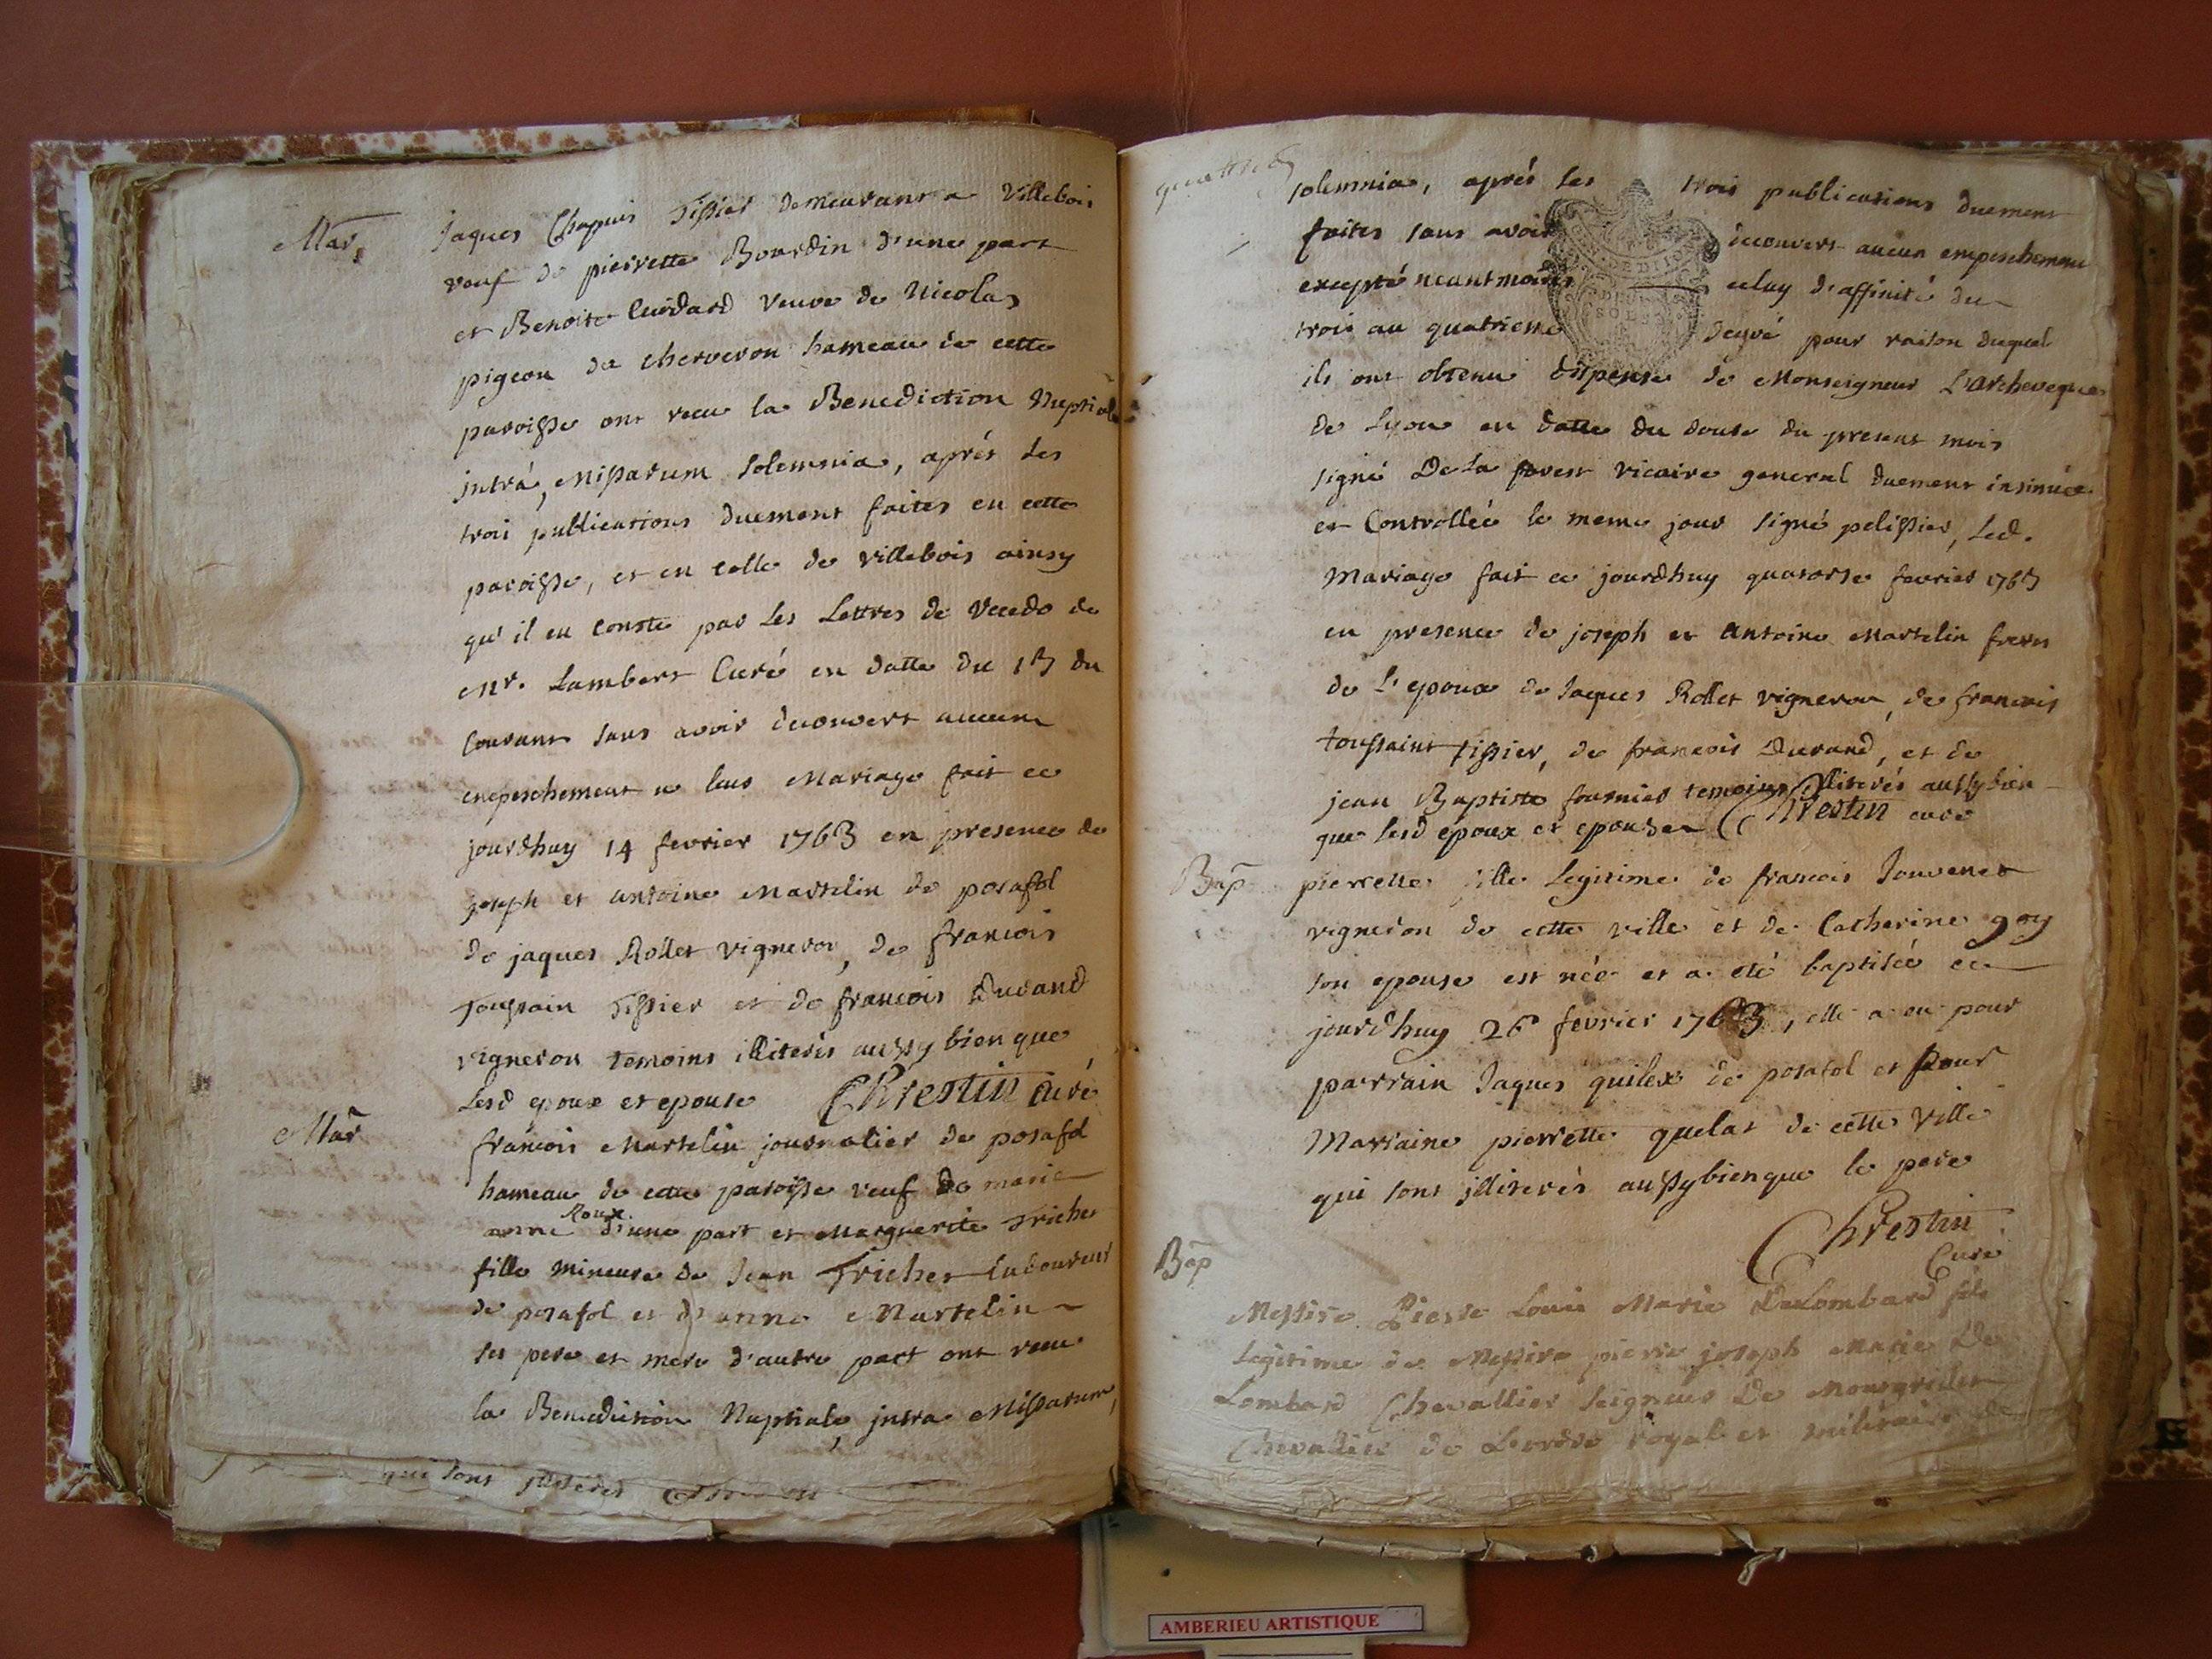 Mar,
Jaques Chapuis Tissier demeurant a Villebois
veuf de pierrette Bourdin d'une part
et Benoite Cuidard veuve de Nicolas
pigeon de cherveron hameau de cette
paroisse ont recu la Benediction Nuptiale
jntrà, Missarum Solemnia, aprés les
trois publications duement faites en cette
paroisse, et en celle de villebois ainsy
qu'il en conste par les Lettres de Recedo de
Mr. Lambert Curé en datte du 13 du
Courant sans avoir decouvert aucun
empeschement a leur Mariage fait ce
jourdhuy 14 fevrier 1763 en presence de
joseph et antoine Martelin de posafol
de jaques Rollet vigneron, de francois
Toussain Tissier et de francois Durand
vigneron temoins illiterés aussy bien que
Lesd epoux et epouse Chrestin curé
Mar
francois Martelin journalier de posafol
hameau de cette paroisse veuf de marie
anne Roux d'une part et Marguerite Tricher
fille mineure de Jean Tricher Laboureur
de posafol et d'anne Martelin
ses pere et mere d'autre part ont recu
la Benediction Nuptiale, jntra Missarum,
qui sont
solemnia, aprés les trois publications duement
faites sans avoir decouvert aucun empeschement
excepté neantmoins celuy d'affinité du
trois au quatrieme degré pour raison duquel
ils ont obtenu dispense de Monseigneur L'archeveque
de Lyon en datte du douse du present mois
signé De la forest vicaire general duement insinuée
et Controllée le meme jour signé pelissier, Led.
Mariage fait ce jourdhuy quatorse fevrier 1763
en presence de joseph et antoine Martelin freres
de L'epoux de Jaques Rollet vigneron, de francois
toussaint tissier, de francois Durand, et de
jean Baptiste fournier temoins jlliterés aussy bien
que lesd epoux et epouse Chrestin curé
Bap
pierrette fille Legitime de francois Jouvenet
vigneron de cette ville et de Catherine goy
son epouse est née et a eté baptisée ce
jourdhuy 26 fevrier 1763, elle a eu pour
parrain Jaques quilex de posafol et pour
Marraine pierrette quelat de cette Ville
qui sont jlliterés aussy bien que le pere
Chrestin
Curé
Bap
Messire Pierre Louis Marie DeLombard fils
Legitime de Messire pierre joseph Marie De
Lombard Chevallier Seigneur De
Chevalier de Lordre royal et militaire de
AMBERIEU ARTISTIQUE